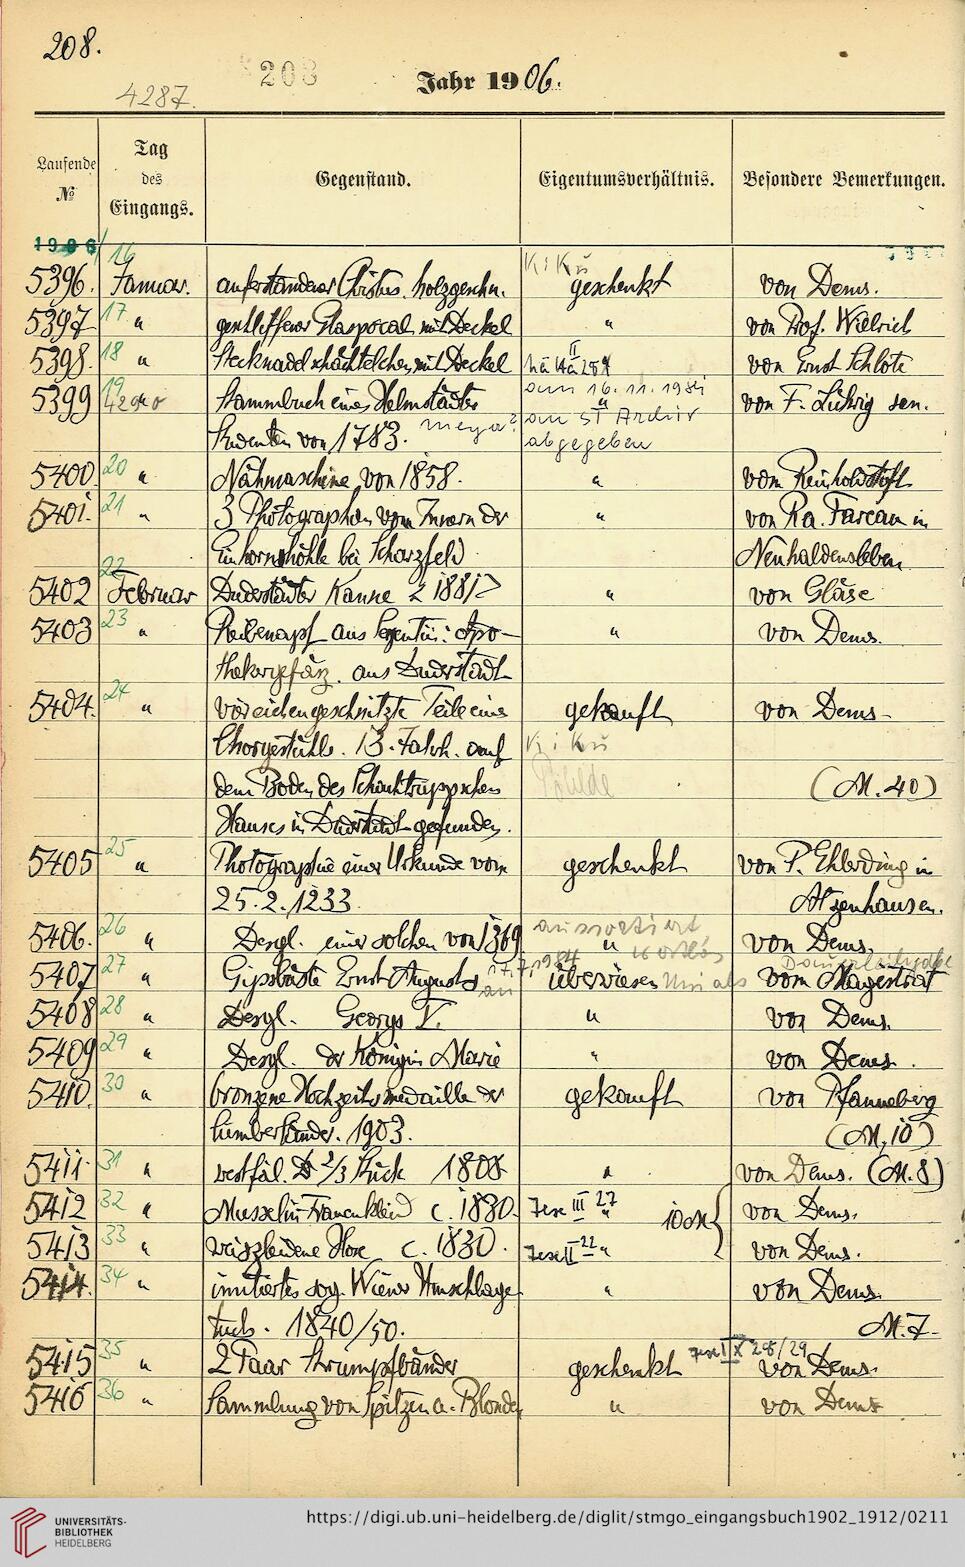 208.
208
Jahr 1906.
4287.
Laufende
№
Tag
des
Eingangs.
Gegenstand.
Eigentumsverhältnis.
Besondere Bemerkungen.
1906/
16
KiKü
5396. Januar. auferstandener Christus. holzgeschn. geschenkt von Dems.
5397 17 " geschliffener Glaspocal mit Deckel " von Prof. Willrich
5398. 18 " Stecknadelschächtelchen mit Deckel von Ernst Schlote
5399 19 Stammbuch eines Helmstädter am 16.11.198 von F. Ludwig sen.
Studenten von 1783. Meyer? an ST Archiv
abgegeben
5400. 20 " Nähmaschine von 1858. " vom
5401. 21 " 3 Photographien vom Innern der " von Ra. Farcau in
Einhornshöhle bei Scharzfeld Neuhaldensleben.
5402 22 Februar Duderstädter Kanne 1881 " von Gläse
5403 23 " Reibenapf aus Serpentin: Apo- " von Dems.
thekergefäsz. aus Duderstadt
5404. 24 " vier eichengeschnitzte Teile eines gekauft von Dems.
Chorgestühls. 13. Jahrh. auf KiKü
dem Boden des Pöhlde (M. 40)
Hauses in Duderstadt gefunden.
5405 25 " Photographie einer Urkunde vom geschenkt von P. Ehlerding in
25.2.1233. Atzenhausen.
5406. 26 " Desgl. einer solchen von 1369 aussortiert
" wertlos von Dems.
Dauerleihgabe
5407 27 " Gipsbüste Ernst Augusts 17.7.1984 an überwiesen Uni als vom Magistrat
5408 28 " Desgl. Georgs V. " von Dems.
5409 29 " Desgl. der Königin Marie " von Dems.
5410. 30 " bronzene Hochzeitsmedaille der gekauft von Pfanneberg
Cumberländer. 1903. (M, 10)
5411. 31 " westfäl. 2/3 Stück 1808 " von Dems. (M. 8)
5412 32 " Musselin Frauenkleid c. 1880. III 27 " von Dems.
5413 33 " weiszleidene Hose c. 1830. II 22 " von Dems.
5414. 34 " imitiertes sog. Wiener Umschlage- " von Dems.
tuch. 1840/50. M. 7-
5415 35 " 2 Paar Strumpfbänder geschenkt 28/29 von Dems.
5416 36 " Sammlung von Spitzen u. Blonden " von Dems
UNIVERSITÄTS-
BIBLIOTHEK
HEIDELBERG
https://digi.ub.uni-heidelberg.de/diglit/stmgo_eingangsbuch1902_1912/0211